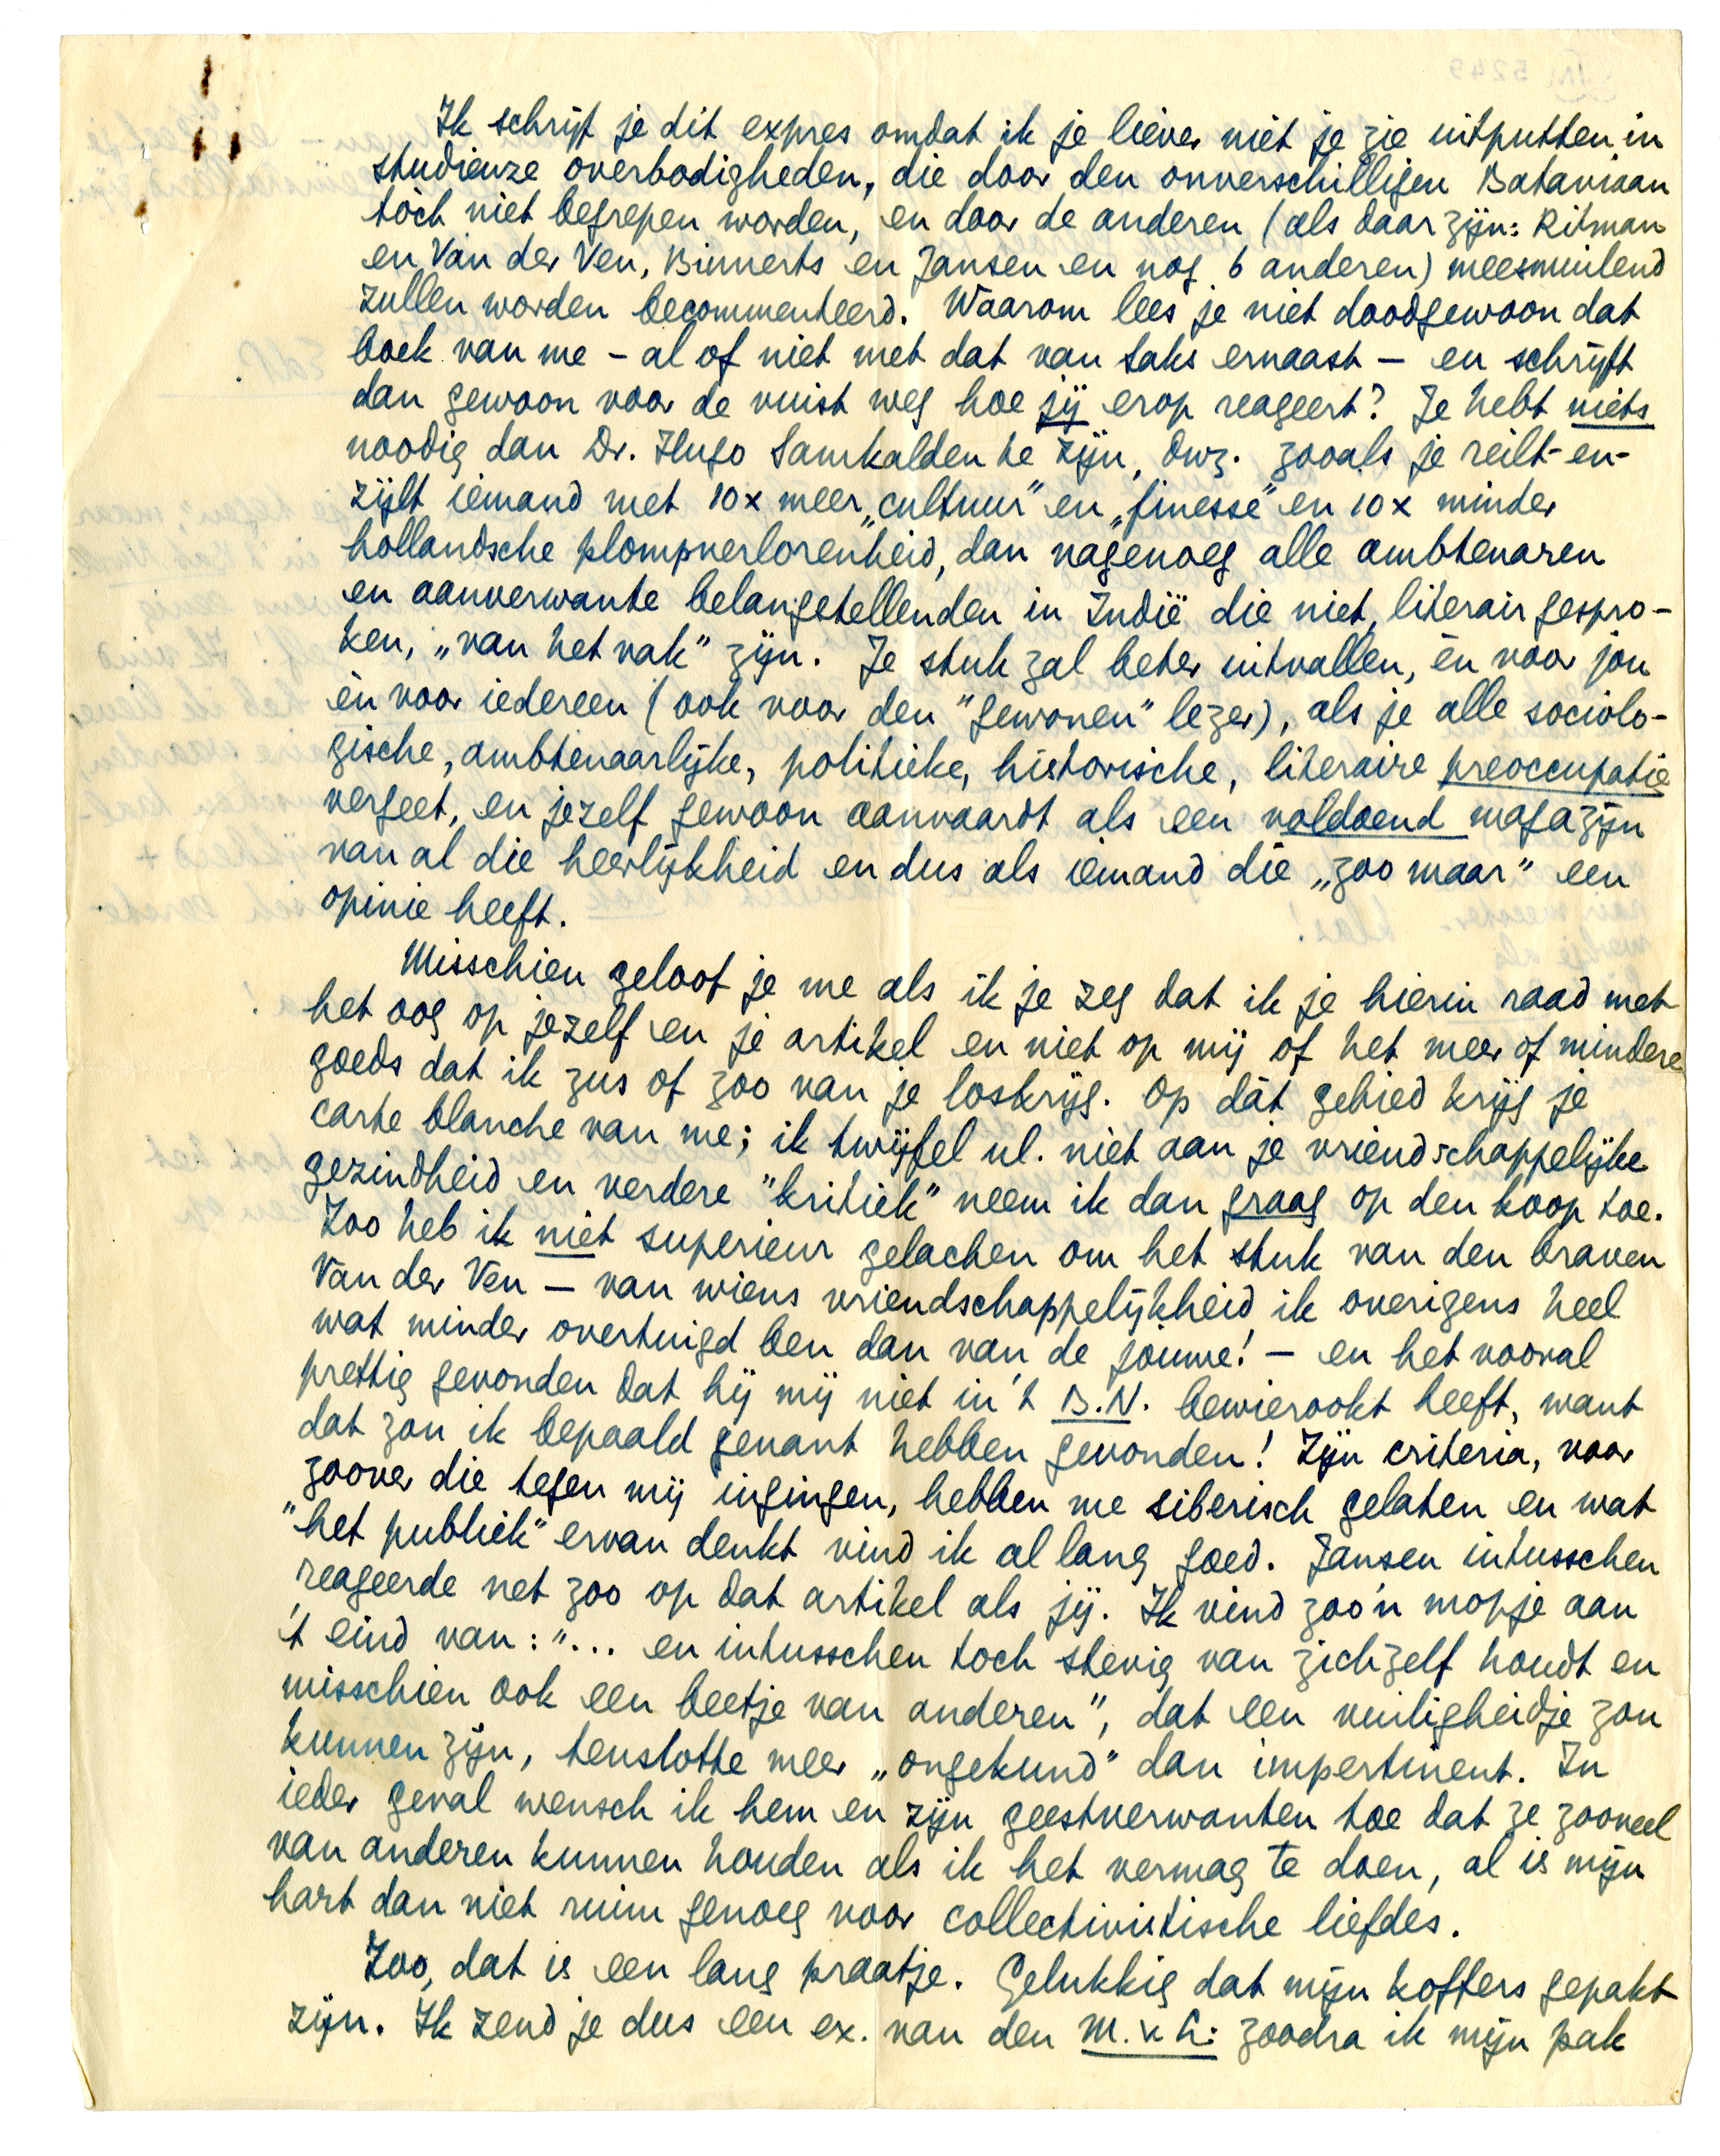 Ik schrijf je dit expres omdat ik je liever niet je zie uitputten in
studieuze overbodigheden, die door den onverschilligen Bataviaan
tòch niet begrepen worden, en door de anderen (als daar zijn: Ritman
en Van der Ven, Binnerts en Jansen en nog 6 anderen) meesmuilend
zullen worden becommenteerd. Waarom lees je niet doodgewoon dat
boek van me – al of niet met dat van Saks ernaast – en schrijft
dan gewoon voor de vuist weg hoe jij erop reageert? Je hebt niets
noodig dan Dr. Hugo Samkalden te zijn, dwz. zooals je reilt-en-
zijlt iemand met 10x meer „cultuur” en „finesse” en 10x minder
hollandsche plompverlorenheid, dan nagenoeg alle ambtenaren
en aanverwante belangstellenden in Indië die niet, literair gespro-
ken, „van het vak” zijn. Je stuk zal beter uitvallen, èn voor jou
èn voor iedereen (ook voor den "gewonen" lezer), als je alle sociolo-
gische, ambtenaarlijke, politieke, historische, literaire preoccupatie
vergeet, en jezelf gewoon aanvaardt als een voldoend magazijn
van al die heerlijkheid en dus als iemand die „zoo maar” een
opinie heeft.
Misschien geloof je me als ik je zeg dat ik je hierin raad met
het oog op jezelf en je artikel en niet op mij of het meer of mindere
goeds dat ik zus of zoo van je loskrijg. Op dàt gebied krijg je
carte blanche van me; ik twijfel nl. niet aan je vriendschappelijke
gezindheid en verdere "kritiek" neem ik dan graag op den koop toe.
Zoo heb ik niet superieur gelachen om het stuk van den braven
Van der Ven – van wiens vriendschappelijkheid ik overigens heel
wat minder overtuigd ben dan van de jouwe! – en het vooral
prettig gevonden dat hij mij niet in 't B.N. bewierookt heeft, want
dat zou ik bepaald genant hebben gevonden! Zijn criteria, voor
zoover die tegen mij ingingen, hebben me siberisch gelaten en wat
"het publiek" ervan denkt vind ik al lang goed. Jansen intusschen
reageerde net zoo op dat artikel als jij. Ik vind zoo'n mopje aan
't eind van: "... en intusschen toch stevig van zichzelf houdt en
misschien ook een beetje van anderen", dat een vuiligheidje zou
kunnen zijn, tenslotte meer „ongekund” dan impertinent. In
ieder geval wensch ik hem en zijn geestverwanten toe dat ze zooveel
van anderen kunnen houden als ik het vermag te doen, al is mijn
hart dan niet ruim genoeg voor collectivistische liefdes.
Zoo, dat is een lang praatje. Gelukkig dat mijn koffers gepakt
zijn. Ik zend je dus een ex. van den M. v. L. zoodra ik mijn pak